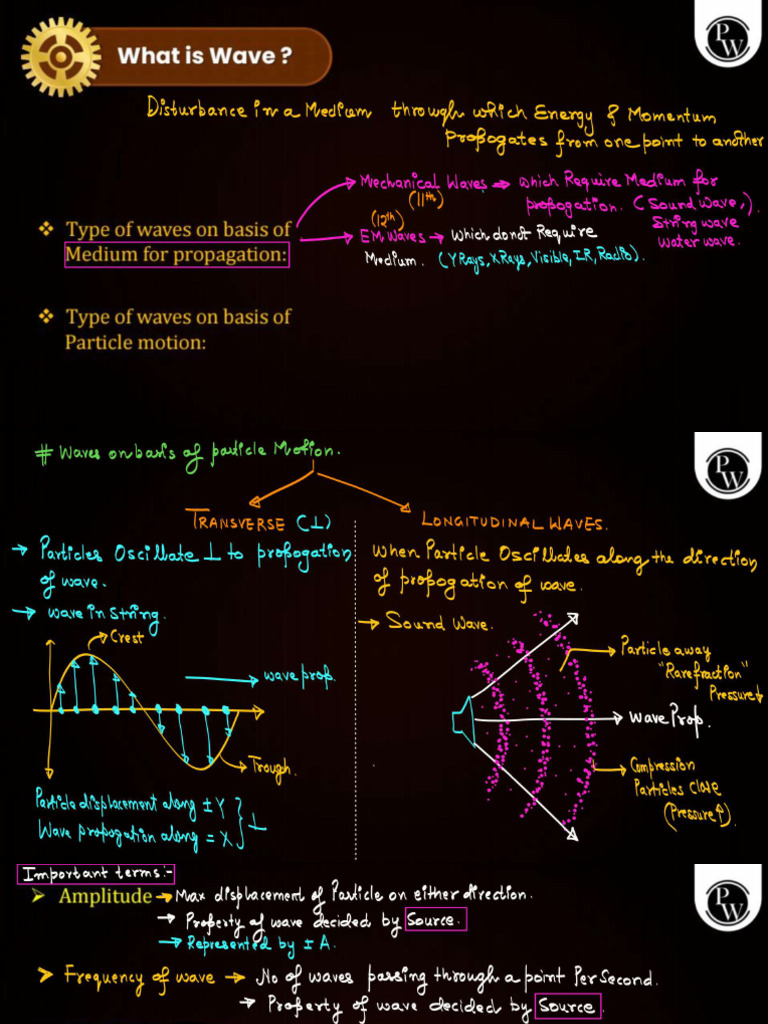 What is Wave ?
PW
Disturbance in a Medium through which Energy & Momentum
Propogates from one point to another
❖ Type of waves on basis of
Medium for propagation:
Mechanical Waves → which Require Medium for
(11th)
propogation. (Sound Wave,).
String wave
water wave.
(12th)
EM Waves → which do not Require
Medium. (γ Rays, X Rays, Visible, IR, Radio).
❖ Type of waves on basis of
Particle motion:
PW
# Waves on basis of particle Motion.
TRANSVERSE (⊥)
→ Particles Oscillate ⊥ to propogation
of wave.
→ wave in string.
Crest
wave prop.
Trough.
Particle displacement along ± Y
Wave propogation along = X
} ⊥
LONGITUDINAL WAVES.
When Particle Oscillates along the direction
of propogation of wave.
→ Sound Wave.
→ Particle away
"Rarefraction"
Pressure↓
→ Wave Prop.
→ Compression
Particles close
(Pressure↑).
PW
Important terms:-
➤ Amplitude → Max displacement of Particle on either direction.
→ Property of wave decided by Source.
→ Represented by ± A.
➤ Frequency of wave → No of waves passing through a point Per Second.
→ Property of wave decided by Source.